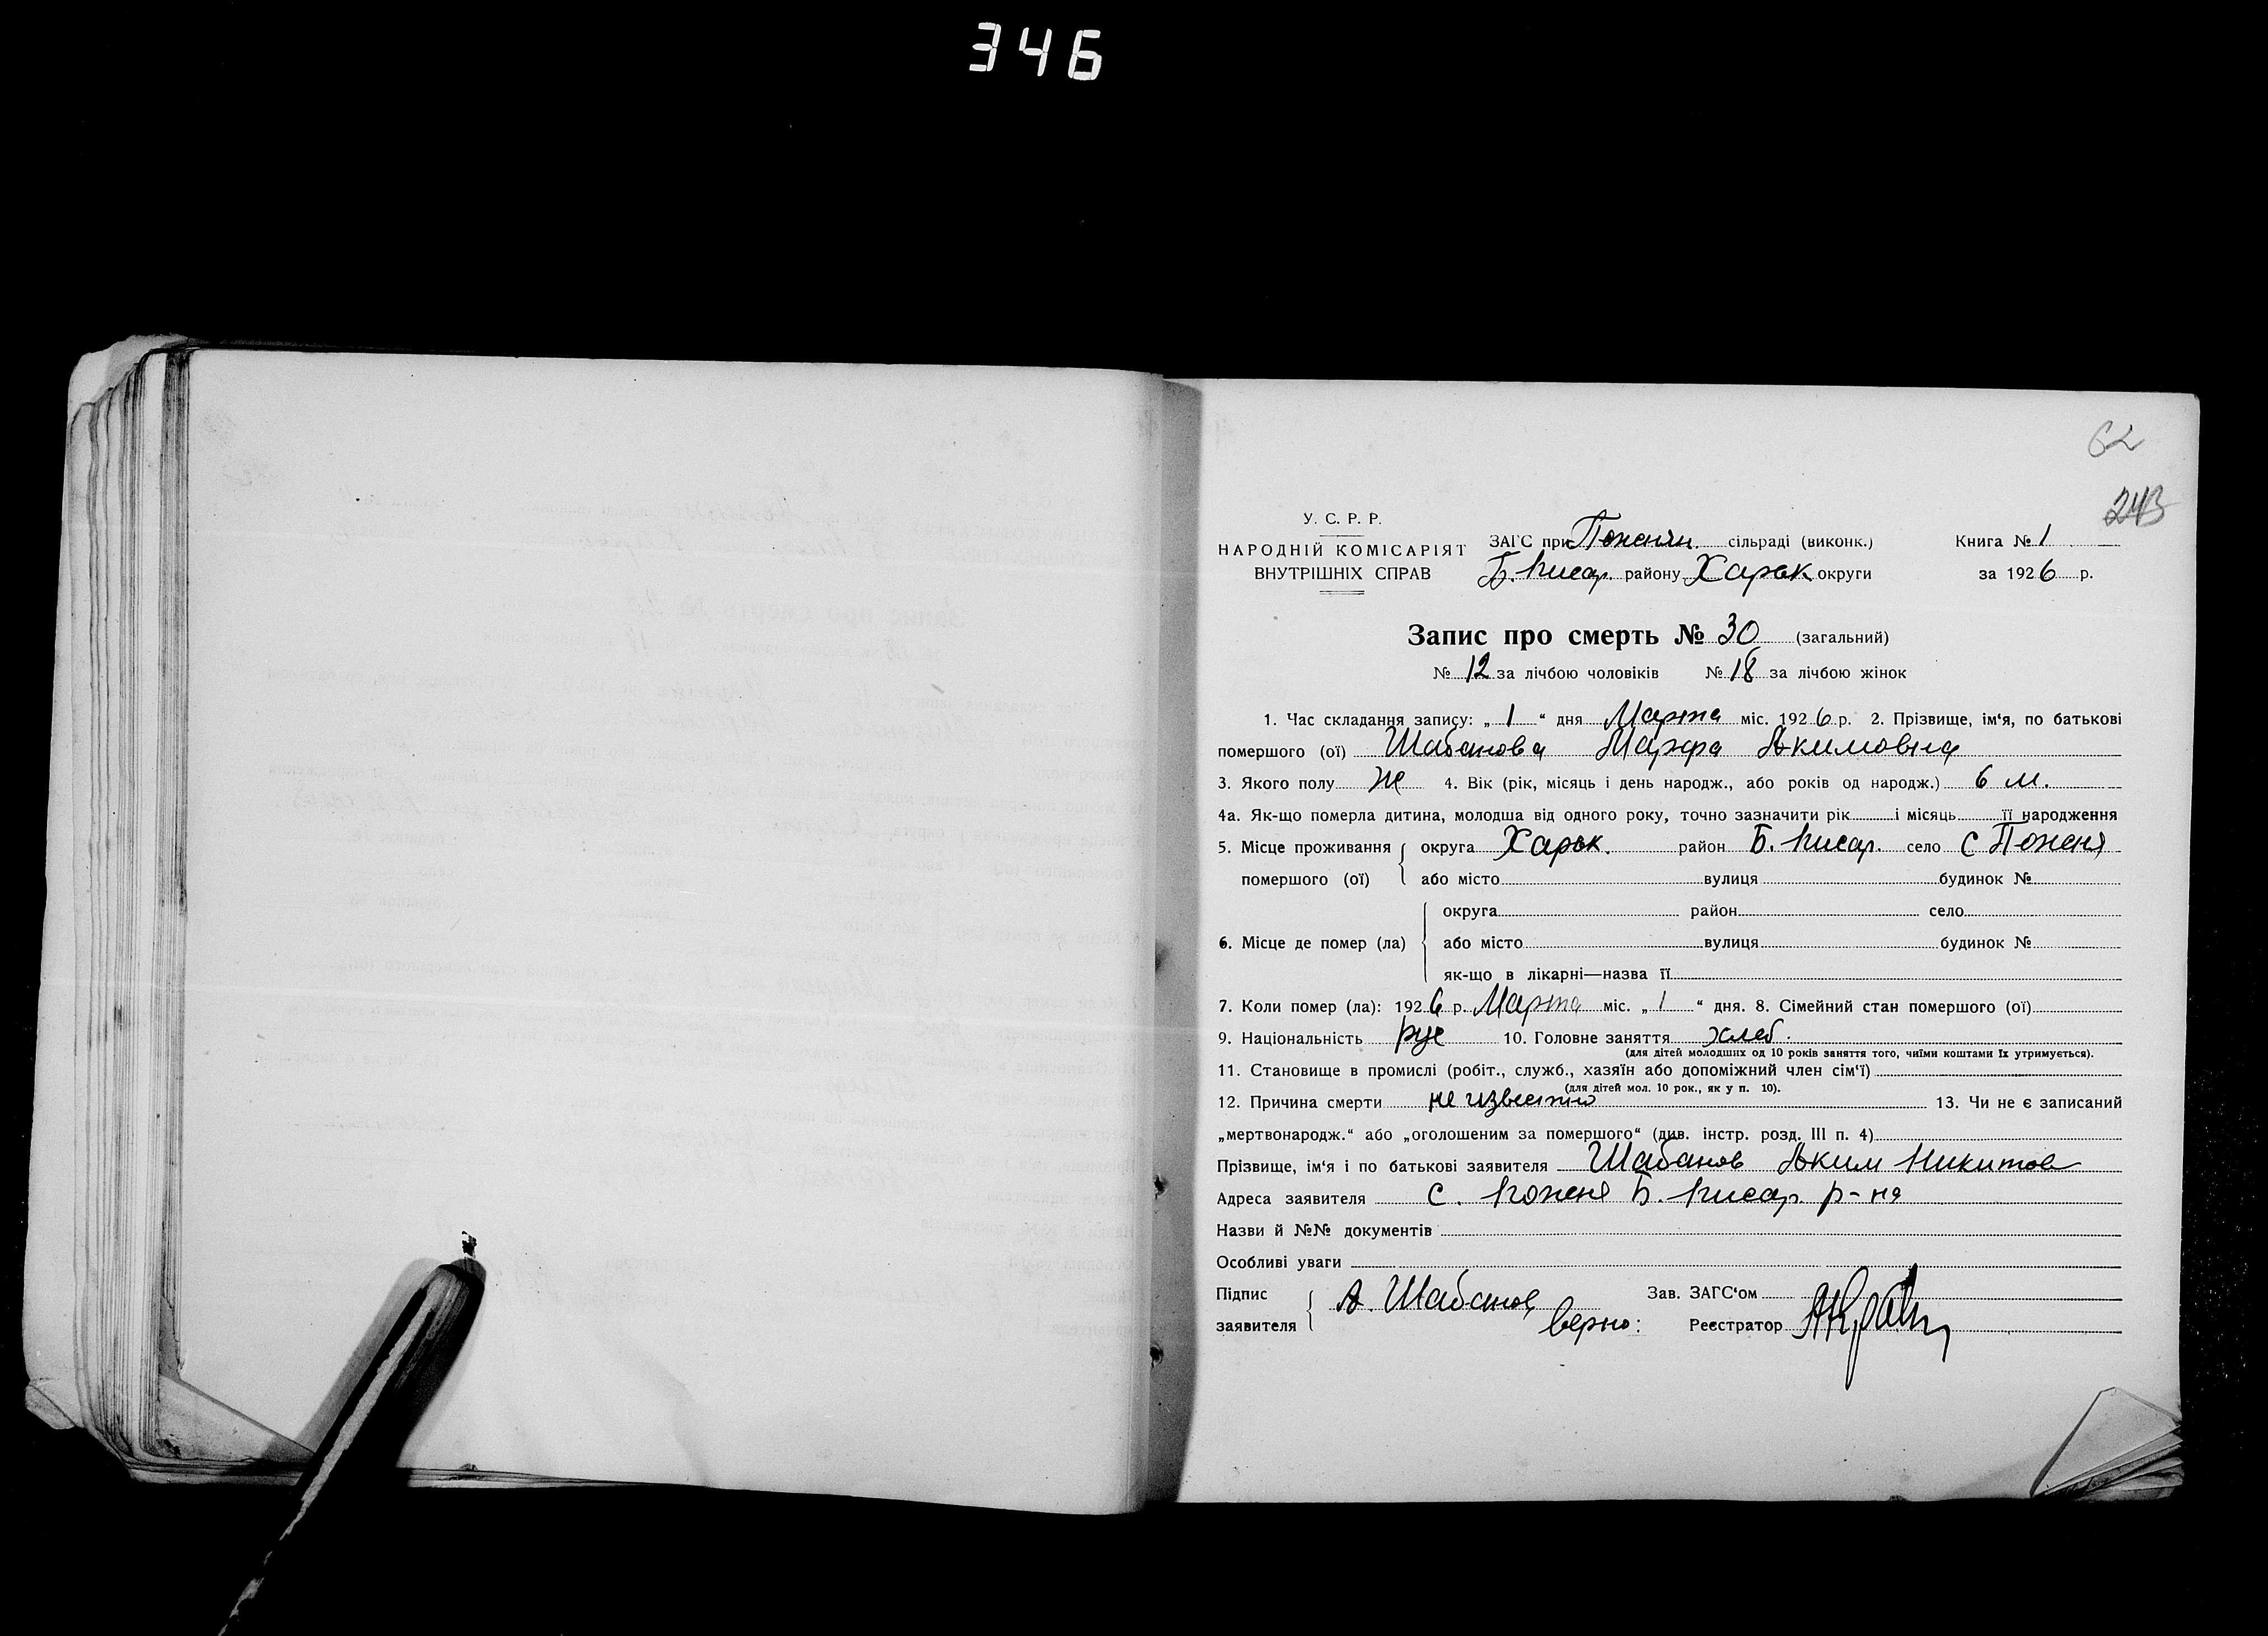 346
62
243
У. С. Р. Р.
НАРОДНІЙ КОМІСАРІЯТ
ВНУТРІШНІХ СПРАВ
ЗАГС при Пожнян. сільраді (виконк.)
Б. Писар. району Харьк округи
Книга № 1
за 1926 р.
Запис про смерть № 30 (загальний)
№ 12 за лічбою чоловіків № 18 за лічбою жінок
1. Час складання запису: „ 1 “ дня Марта міс. 1926 р. 2. Прізвище, ім‘я, по батькові
помершого (ої) Шабанова Марфа Акимовна
3. Якого полу Ж 4. Вік (рік, місяць і день народж., або років од народж.) 6 м.
4а. Як-що померла дитина, молодша від одного року, точно зазначити рік і місяць її народження
5. Місце проживання округа Харьк. район Б. Писар. село с Поженя
помершого (ої) або місто вулиця будинок №
округа район село
6. Місце де помер (ла) або місто вулиця будинок №
як-що в лікарні—назва її
7. Коли помер (ла): 1926 р. Марта міс. „ 1 “ дня. 8. Сімейний стан помершого (ої)
9. Національність рус 10. Головне заняття хлеб.
(для дітей молодших од 10 років заняття того, чиїми коштами їх утримується).
11. Становище в промислі (робіт., служб., хазяїн або допоміжний член сім‘ї)
(для дітей мол. 10 рок., як у п. 10).
12. Причина смерти не известно 13. Чи не є записаний
„мертвонародж.“ або „оголошеним за помершого“ (див. інстр. розд. III п. 4)
Прізвище, ім‘я і по батькові заявителя Шабанов Аким Никитов
Адреса заявителя с. Поженя Б. Писар. р-на
Назви й №№ документів
Особливі уваги
Підпис
заявителя А. Шабанов
верно:
Зав. ЗАГС‘ом
Реєстратор